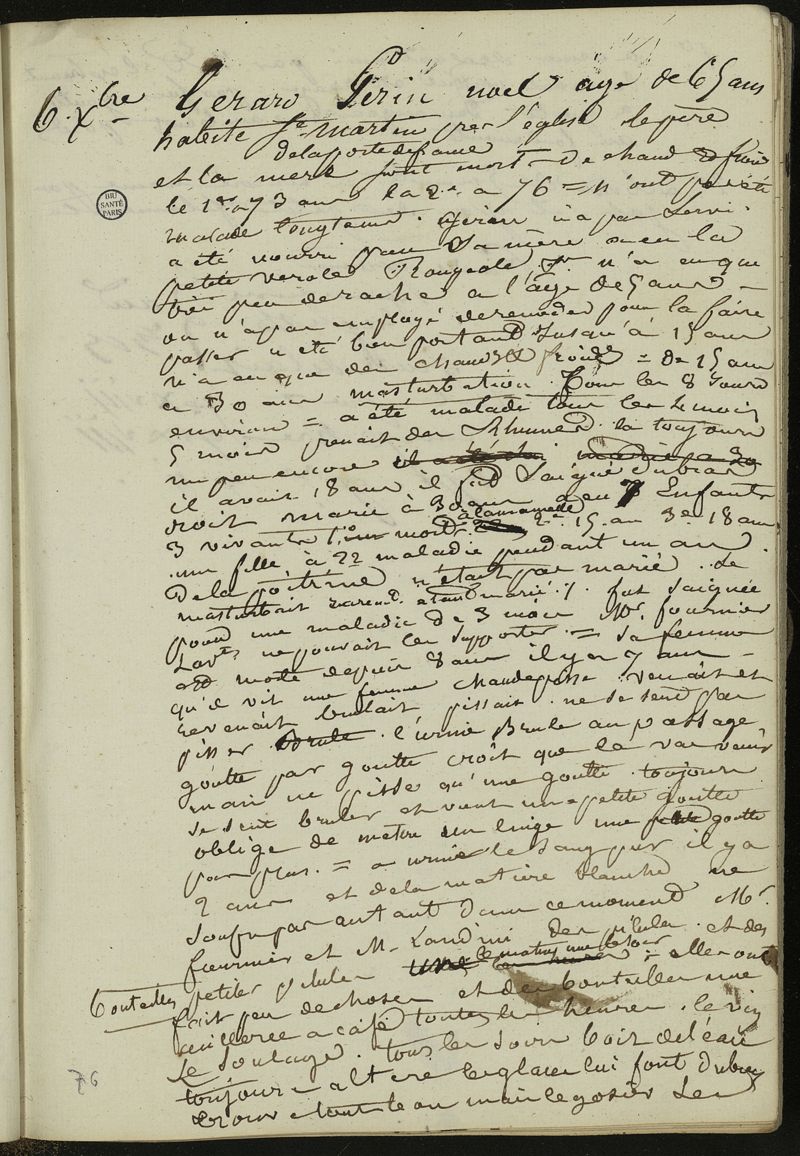 6 Xbre Gerard Perin noel age de 65 ans
habite St martin pres l'église le père
de la porte de fame
et la mere sont mort De chaud & froid
le 1er a 73 ans la 2e a 76 = n'ont pas été
malade longtems. Perin n'a pas servi.
a été nourri par Sa mère a eu la
petite verole Rougeole, n'a eu que
très peu de rache a l'age de 5 ans
on n'a pas employé de remedes pour la faire
passer a été bien portant Jusqu'à 15 ans
n'a eu que des chauds & froids = de 15 ans
a 30 ans masturbation. Tous les 8 Jours
environ = a été malade tous les 4 mois
5 mois prenait des Rhumes. la toujours
un peu encore
il avait 18 ans il fut Saigné du bras
droit marié à 30 ans a eu 7 Enfants
3 vivants 1° mort a la mamelle 2e 15 an 3e 18 ans
une fille, à 22 maladie pendant un an
De la poitrine n'étant pas marié. se
masturbait rarement étant marié. fut saignée
pour une maladie de 3 mois Mr. fournier
Lavts ne pouvait les supporter. = Sa femme
est morte depuis 8 ans il y a 7 ans
qu'il vit une femme chaudepisse. venait et
revenait brulait pissait ne se sent pas
pisser. Brule. l'urine Brule au passage
goutte par goutte croit que la va venir
mais ne pisse qu'une goutte toujours
se sent bruler et vient une petite goutte
obligé de metre un linge une petite goutte
pas plus. = a uriné le sang pur il y a
2 ans et de la matiere blanche ne
soufre pas autant dans ce moment Mr.
fournier et M. Landini des pilules et des
Bouteilles petites pilules une le matin une le soir
fait peu de choses et des bouteilles une
cuilleree a café toutes les heures = elles ont
Le Soulagé. tous les soirs boit de l'eau
toujours altéré les glaires lui font du bien
76